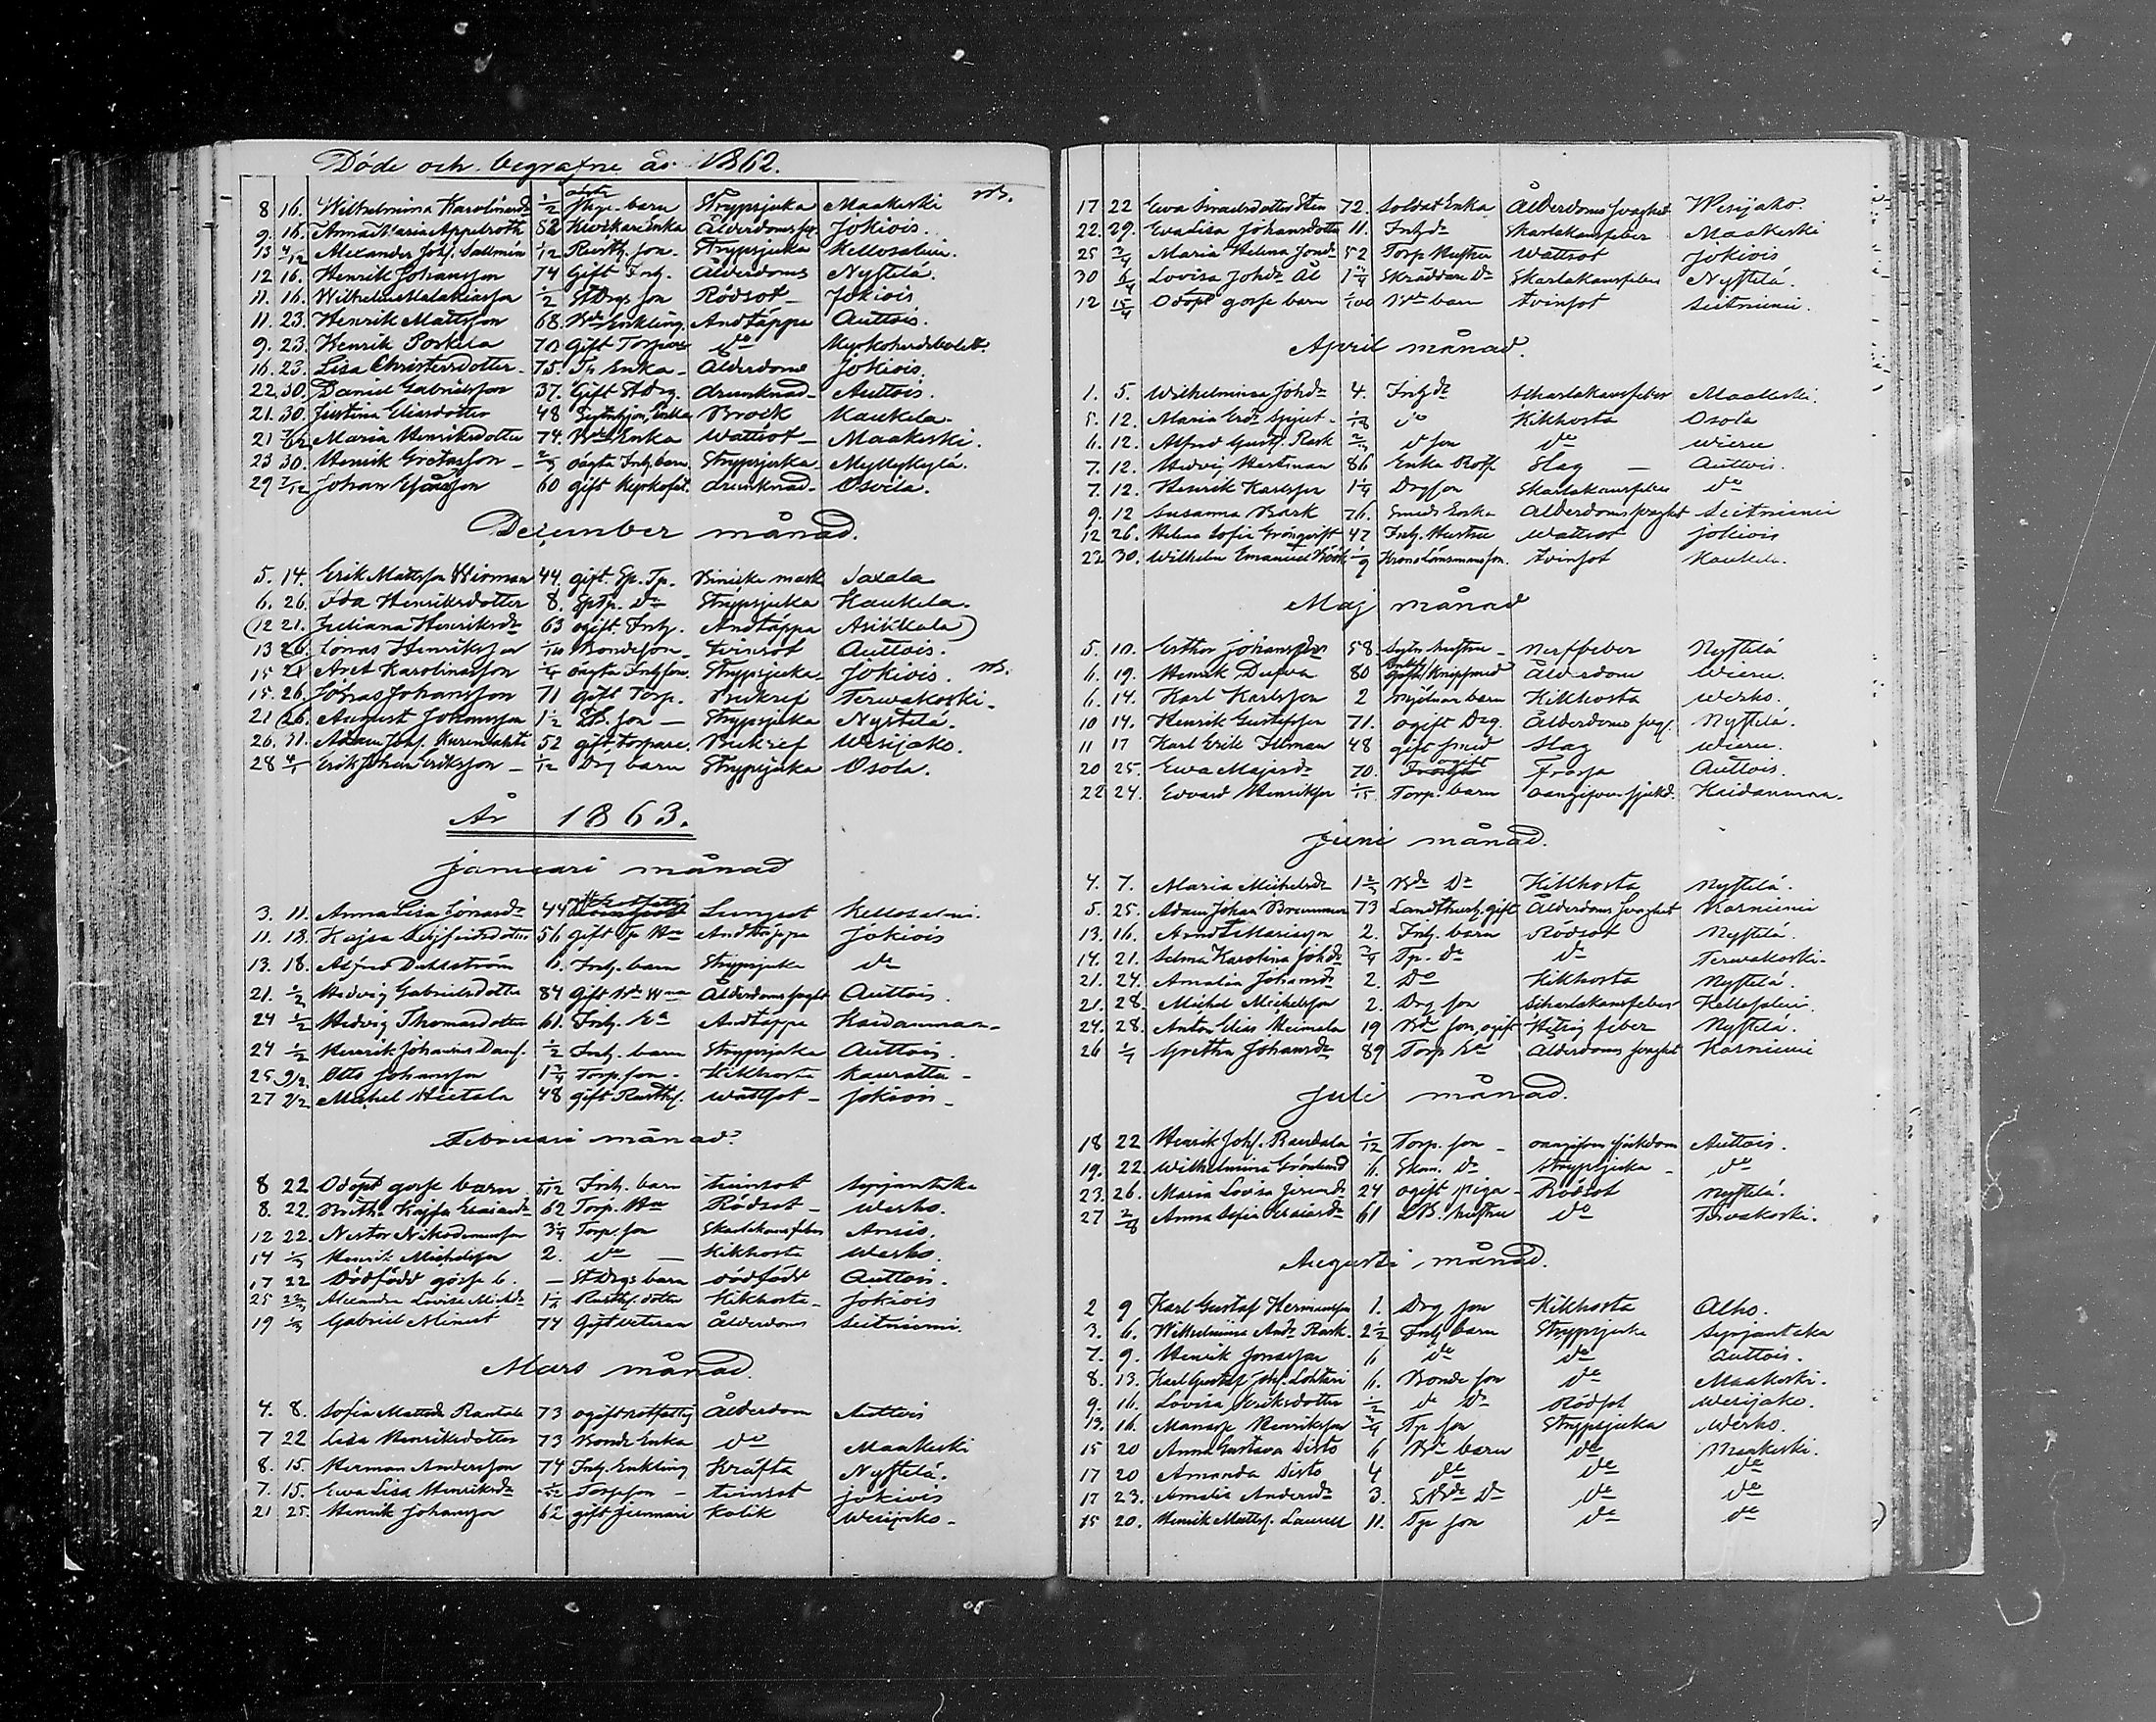 Döde och begrafne år 1862.
8 16. Wilhelmina Karolinasdr 1/2 oägta barn Strypsjuka Maakeski
9. 16. Anna Maria Appelroth 82 Enka Ålderdoms Jokiois.
13 4/12 Alexander Johs. Sallmén 1/12 Rusth. son. Strypsjuka Kellosalmi.
12 16. Henrik Johansson 74 Gift Inh. Ålderdoms Nystelä.
11. 16. Wilhelm Malakiasson 1/2 St Drgs son Rödsot Jokiois
11. 23. Henrik Mattsson 68. Bde Enkling Andtäppa Auttois.
9. 23. Henrik Poskela 70 Gift Torpare do
16. 23. Lisa Christersdotter 75. Tp Enka Ålderdoms Jokiois.
22. 30. Daniel Gabrielsson 37. Gift St Drg. drunknad Auttois.
21. 30. Justina Eliasdotter 48 Enka Brock Kaukela.
21 7/12 Maria Henriksdotter 74. Bde Enka Wattsot Maakeski.
23 30. Henrik Gretasson 2/3 oägta Inh. barn Strypsjuka Myllykylä.
29 7/12 Johan 60 gift drunknad Osoila.
December månad.
5. 14. Erik Mattsson 44. gift. Sp. Tp. mask Saxala
6. 26. Ida Henriksdotter 8. Sp Tp. Dr Strypsjuka Kaukela.
(12 21. Juliana Henriksdr 63 ogift Inh. Andtäppa Asikkala)
13 26. Jonas Henriksson 1/10 Bondeson Tvinsot Auttois.
15 21 Aret Karolinasson 1/4 oägta Inh. son. Strypsjuka Jokiois.
15. 26. Johan Johansson 71 gift Torp. Bukref Terwakoski.
21 26. August Johansson 1 1/2 LB. son Strypsjuka Nystelä.
26. 31. Adam Johs. Kurenlahti 52 gift torpare Bukref Wesijako.
28 4/1 Erik Johan Eriksson 1/12 Drg barn Strypsjuka Osola.
År 1863.
Januari månad
3. 11. Anna Lisa Jonasdr 44 Lungsot Kellosalmi.
11. 18. Kajsa Sigfridsdotter 56 gift Tp Hu Andtäppa Jokiois
13. 18. Alfred Dahlström 6. Inh. barn Strypsjuka do
21. 1/2 Hedvig Gabrielsdotter 84 Gift Bde Ålderdoms svaght Auttois.
24 1/2 Hedvig Thomasdotter 61. Inh. Ea Andtäppa Kaidanmaa
24 1/2 Henrik Johannes 1/2 Inh. barn Strypsjuka Auttois.
25. 9/2. Otto Johansson 1 3/4 Torp. son. Kikhosta Kauratta
27 2/2 Mickel Hietala 48 gift Rusth. Wattsot Jokiois
Februari månad
8 22 Odöpt gosse barn 1/612 Inh. barn tvinsot Syrjäntaka
8. 22. Brita Kajsa Esaiasdr 62 Torp. Hu Rödsot Werho.
12 22. Nestor Nikodemusson 3 1/4 Torp. son Skarlakansfeber Arrais.
14 1/3 Henrik Michelsson 2. do Kikhosta Werho.
17 22 Dödfödd gosse b. — St Drgs barn dödfödd Auttois.
25 22/3 Alexandra Lovisa Michdr 1 1/6 Rusth. dotter Kikhosta Jokiois
19 1/3 Gabriel Minut 74 Gift veteran Ålderdoms Seitniemi.
Mars månad.
4. 8. Sofia Mattsdr Rantala 73 ogift rotfattig Ålderdom Auttois
7 22 Lisa Henriksdotter 73 Bonde Enka do Maakeski
8. 15. Herman Andersson 74 Inh. Enkling Kräfta Nystelä.
7. 15. Ewa Lisa Henriksdr Torpson tvinsot Jokiois
21 25. Henrik Johansson 62 gift Kolik Wesijako.
17 22 Ewa Israelsdotter Sten 72. Soldat Enka Ålderdoms svaghet Wesijako.
22. 29. Ewa Lisa Johansdotter 11. Inh dr Skarlakansfeber Maakeski
25 3/4 Maria Helena Jonsdr 52 Torp. Hustru Wattsot Jokiois
30 6/4 Lovisa Johdr Ål 1 3/4 Skräddare Dr Skarlakansfeber Nystelä.
12 15/4 Odöpt gosse barn 1/100 Bde barn tvinsot Seitniemi.
April månad.
1. 5. Wilhelmina Johdr 4. Inh dr Scharlakansfeber Maakeski.
5. 12. Maria 1/18 do Kikhosta Osola
6. 12. Alfred Gust. Rask d son do Wieru
7. 12. Hedvig Hertman 86 Enka Slag Auttois.
7. 12. Henrik Karlsson 1 1/4 Drg son Skarlakansfeber do
9. 12 Susanna Bark 76. Smeds Enka Ålderdoms svaght Seitniemi
12 26. Helena Sofia Grönqvist 47 Inh. Hustru Wattsot Jokiois
22. 30. Wilhelm Emanuel 1/9 Krono Länsmans son. tvinsot Kaukela.
Maj månad
5. 10. Esther Johansdr 58. hustru Nerffeber Nystelä
6. 19. Henrik Dufva 80 Ålderdom Wieru.
6. 14. Karl Karlsson 2 Mjölnar barn Kikhosta Werho.
10 14. Henrik Gustafsson 71. ogift Drg. Ålderdoms Nystelä.
11 17 Karl Erik Illman 48 gift smed Slag Wieru.
20 25. Ewa Majasdr 70. ogift Frossa Auttois.
22 24. Edvard Henriksson 1/15 Torp. barn oangifven sjukd. Kaidanmaa.
Juni månad.
4. 7. Maria Michelsdr 1 2/3 Bde Dr Kikhosta Nystelä.
5. 25. Adam Johan Brummer 73 Landthush. gift Ålderdoms svaghet Karniemi
13. 16. Arvid Mariasson 2. Inh. barn Rödsot Nystelä.
14. 21. Selma Karolina Johdr 3/4 Tp. dr do Terwakoski.
21. 24. Amalia Johansdr 2. Do Kikhosta Nystelä.
21. 28 Michel Michelsson 2. Drg son Scharlakansfeber Kellosalmi.
24. 28. Anton Elias Heimala 19 Bde son, ogift Hetsig feber Nystelä.
26 1/7 Gretha Johansdr 89 Torp Ea Ålderdoms svaght Karniemi
Juli månad.
18 22 Henrik Johs. Randala 1/12 Torp. son oangifven sjukdom Auttois.
19. 22. Wilhelmina Grönlund 6. Skom. Dr Strypsjuka do
23. 26. Maria Lovisa 24 ogift piga Rödsot Nystelä.
27 2/8 Anna Sofia Esaiasdr 61 LB. hustru do Terwakoski.
Augusti månad.
2 9 Karl Gustaf Hermansson 1. Drg son Kikhosta Alho.
3. 6. Wilhelmina Andr. Rask. 2 1/2 Inh barn Strypsjuka Syrjäntaka
7. 9. Henrik Jonasson 6 do do Auttois.
8. 13. Karl Gustaf Johs. Lohtari 6. Bonde son do Maakeski.
9. 16. Lovisa Eriksdotter 1/2 do Dr Rödsot Wesijako.
13. 16. Manasse Henriksson 3/4 Tp son Strypsjuka Werho.
15 20 Anna Gustava Sisto 6 Bde barn do Maakeski.
17 20 Amanda Sisto 4 do do do
17 23. Amalia Andersdr 3. Dr do do
15 20. Henrik Matts. Laurell 11. Tp son do do